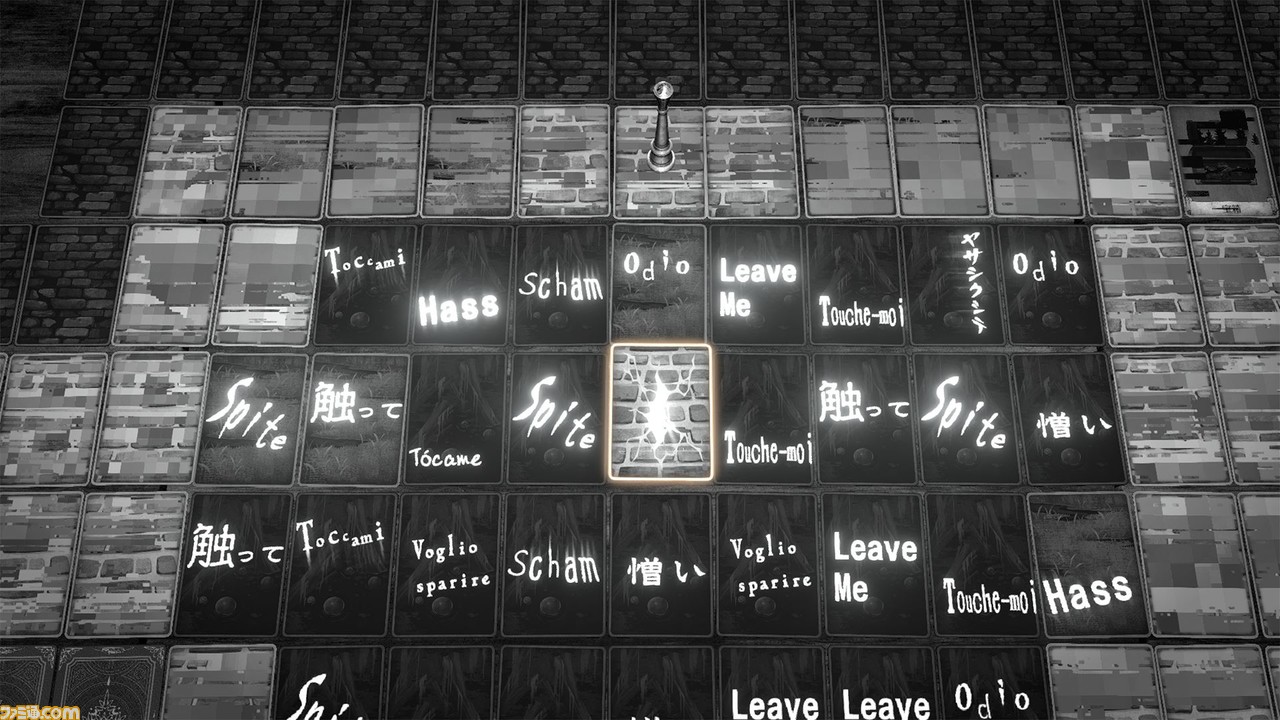 Toccami
Hass
Scham
Odio
Leave
Me
Touche-moi
ヤサシクシテ
Odio
Spite
触って
Tócame
Spite
Touche-moi
触って
Spite
憎い
触って
Toccami
Voglio
sparire
Scham
憎い
Voglio
sparire
Leave
Me
Touche-moi
Hass
Leave
Leave
Odio
ファミ通.com